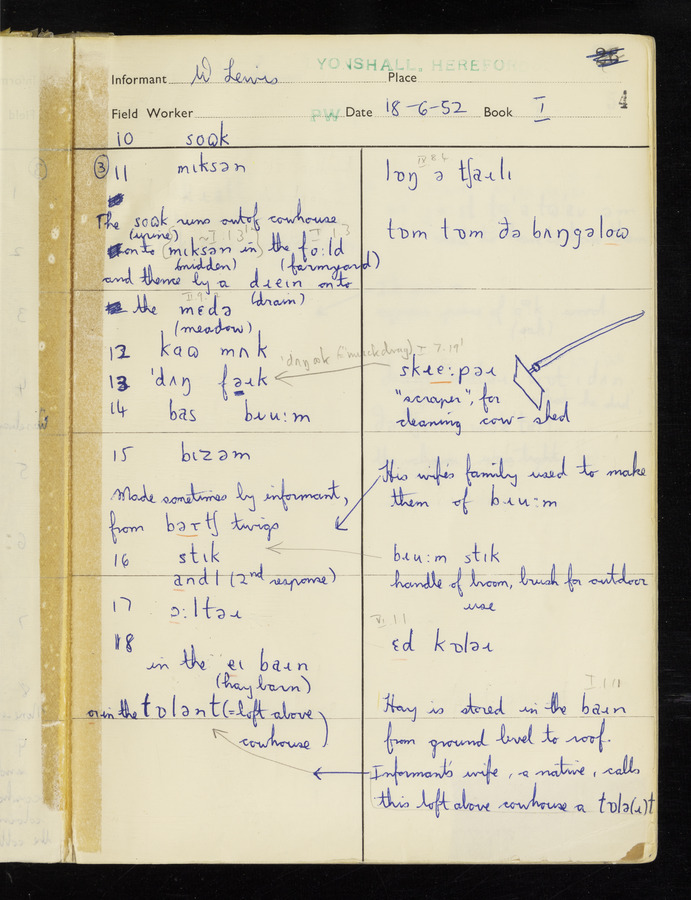 YONSHALL, HEREFOR
Informant W Lewis Place
4
Field Worker PW Date 18-6-52 Book I
10 soɷk
③ 11 mɪksən
The soɷk runs out of cowhouse
(urine)
onto (mɪksən in) the fo:ld
(midden) (farmyard)
and thence by a dɹɛɪn onto
(drain)
the mɛdə
(meadow)
12 kaɷ mʌk
13 'dʌŋ fəɹk
14 bas bɹu:m
15 bɪzəm
Made sometimes by informant,
from bəɹtʃ twigs
16 stɪk
andl (2nd response)
17 ɔ:ltəɹ
18
in the ɛɪ baɹn
(hay barn)
or in the tɒlənt (=loft above
cowhouse)
IV 8 6
lɒŋ ə tʃaɪlɪ
tɒm tɒm ðə bʌŋgəloɷ
'dʌŋ ɒɹk (=muckdrag) I 7.19'
skɹɛ:pəɹ
"scraper", for
cleaning cow-shed
His wife's family used to make
them of bɹu:m
bɹu:m stɪk
handle of broom, brush for outdoor
use
V. 1 1
ɛd kɒləɹ
Hay is stored in the baɹn
from ground level to roof.
Informant's wife, a native, calls
this loft above cowhouse a tɒlə(ɹ)t